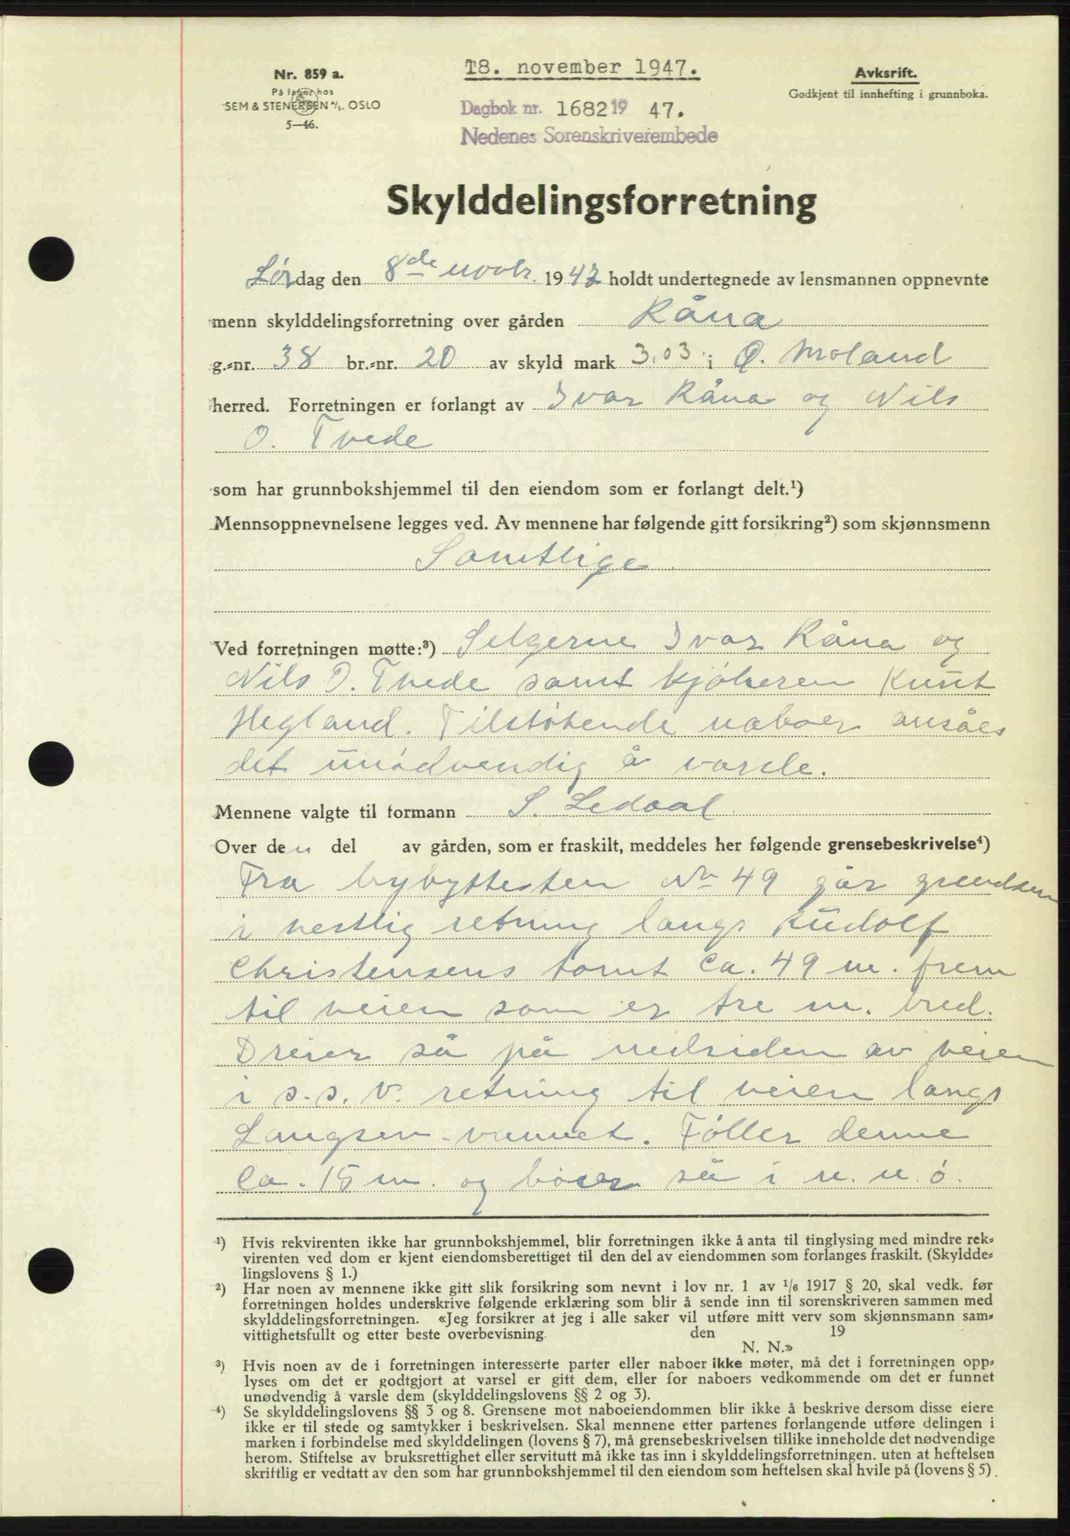 Nr. 859 a.
På lager hos
SEM & STENERSEN A/S. OSLO
5—46.
18. november 1947.
Dagbok nr. 1682 19 47.
Nedenes Sorenskriverembede
Avkskrift.
Godkjent til innhefting i grunnboka.
Skylddelingsforretning
Lørdag den 8de novbr. 1947 holdt undertegnede av lensmannen oppnevnte
menn skylddelingsforretning over gården Råna
g.-nr. 38 br.-nr. 20 av skyld mark 3,03 i Ø. Moland
herred. Forretningen er forlangt av Ivar Råna og Nils
O. Tvede
som har grunnbokshjemmel til den eiendom som er forlangt delt.¹)
Mennsoppnevnelsene legges ved. Av mennene har følgende gitt forsikring²) som skjønnsmenn
Samtlige.
Ved forretningen møtte:³) Selgerne Ivar Råna og
Nils O. Tvede samt kjøberen Knut
Hegland. Tilstøtende naboer ansåes
det unødvendig å varsle.
Mennene valgte til formann S. Ledaal
Over den del av gården, som er fraskilt, meddeles her følgende grensebeskrivelse⁴)
Fra bybyttesten No 49 går grendsen
i vestlig retning langs Rudolf
Christensens tomt ca. 49 m. frem
til veien som er tre m. bred.
Dreier så på nedsiden av veien
i s.s.v. retning til veien langs
Langsev-vannet. Føller denne
ca. 15 m. og bøier så i n.n.ø.
¹) Hvis rekvirenten ikke har grunnbokshjemmel, blir forretningen ikke å anta til tinglysing med mindre rek-
virenten ved dom er kjent eiendomsberettiget til den del av eiendommen som forlanges fraskilt. (Skyldde-
lingslovens § 1.)
²) Har noen av mennene ikke gitt slik forsikring som nevnt i lov nr. 1 av 1/6 1917 § 20, skal vedk. før
forretningen holdes underskrive følgende erklæring som blir å sende inn til sorenskriveren sammen med
skylddelingsforretningen. «Jeg forsikrer at jeg i alle saker vil utføre mitt verv som skjønnsmann sam-
vittighetsfullt og etter beste overbevisning. den 19
N. N.»
³) Hvis noen av de i forretningen interesserte parter eller naboer ikke møter, må det i forretningen opp-
lyses om det er godtgjort at varsel er gitt dem, eller for naboers vedkommende om det er funnet
unødvendig å varsle dem (skylddelingslovens §§ 2 og 3).
⁴) Se skylddelingslovens §§ 3 og 8. Grensene mot naboeiendommen blir ikke å beskrive dersom disse eiere
ikke er til stede og samtykker i beskrivelsen. Skal mennene etter partenes forlangende utføre delingen i
marken i forbindelse med skylddelingen (lovens § 7), må grensebeskrivelsen tillike inneholde det nødvendige
herom. Stiftelse av bruksrettighet eller servitutt må ikke tas inn i skylddelingsforretningen, uten at heftelsen
skriftlig er vedtatt av den som har grunnbokshjemmel til den eiendom som heftelsen skal hvile på (lovens § 5).